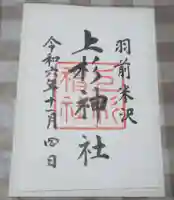 羽前米沢
上杉神社
令和六年十一月四日